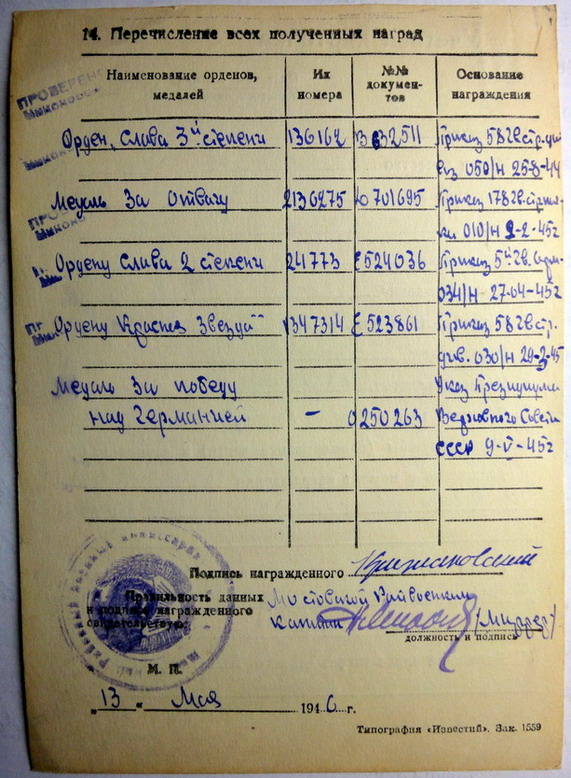 14. Перечисление всех полученных наград
ПРОВЕРЕНО
Наименование орденов, медалей
Их номера
№№ документов
Основание награждения
Орден, Слава 3й степени 136162 532511 Приказ 58 гв. стр. див
050/н 25-8-44
Медаль За Отвагу 2136275 701695 Приказ 178 гв.
010/н 2-2-45г
Ордену Слава 2 степени 24773 Е524036 Приказ 5й гв.
034/н 27-04-45г
Ордену Красная Звезда 1347314 Е523861 Приказ 58 гв стр.
див. 030/н 29-3-45
Медаль За победу Указ Президиума
над Германией - 0250263 Верховного Совета
СССР 9-V-45г
Подпись награжденного
Правильность данных и подписи награжденного свидетельствую:
Мостовской Райвоенком
капитан
должность и подпись
М. П.
„13" Мая 1946 г.
Типография «Известий». Зак. 1559